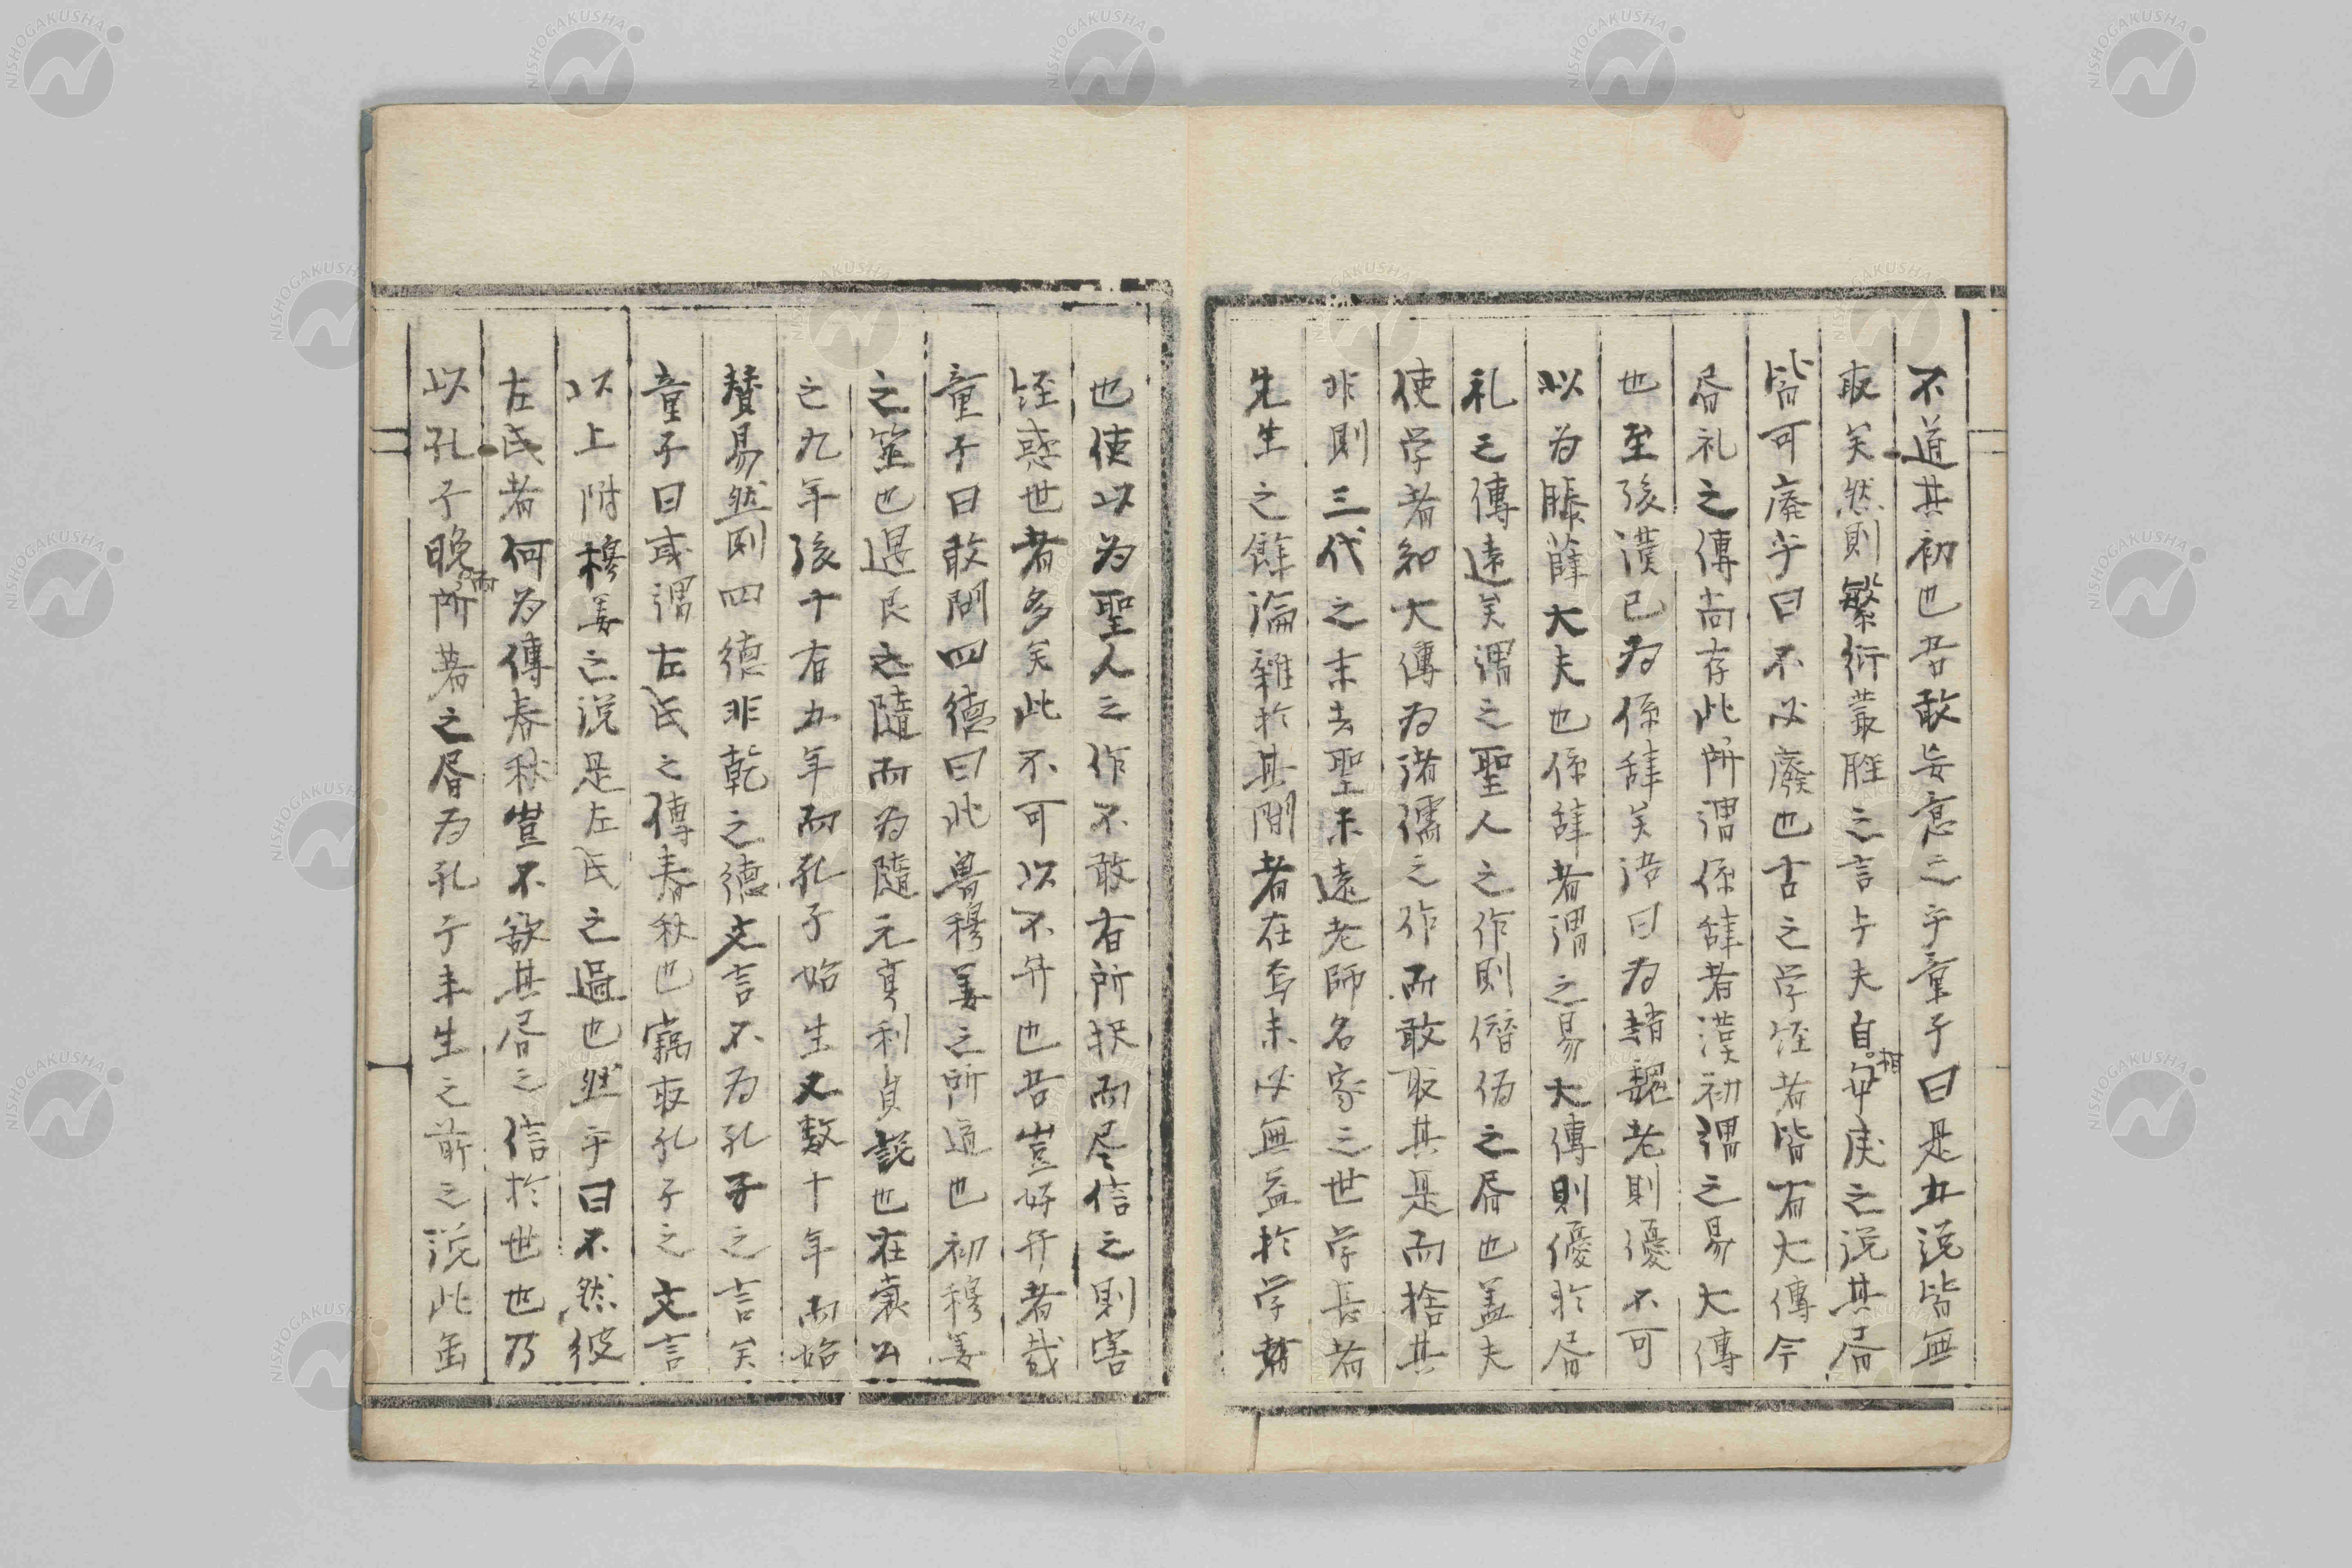 不道其初也吾敢妄意之乎童子曰是五説皆無
取矣然則繁衍叢脞之言与夫自相乖戾之説其书
皆可廃乎曰不必廢也古之学经者皆有大傳今
书礼之傳尚存此所谓係辞者漢初謂之易大傳
也至後漢已为係辞矣语曰为趙魏老則優不可
以为滕薛大夫也係辞者謂之易大傳則優於书
礼之傳遠矣謂之聖人之作則僭伪之书也盖夫
使学者知大傳为诸儒之作而敢取其是而捨其
非則三代之末去聖未遠老師名家之世学長者
先生之餘論雜於其間者在焉未必無益於学者
也使以为聖人之作不敢有所択而尽信之則害
经惑世者多矣此不可以不弁也吾豈好弁者哉
童子曰敢問四德曰此魯穆姜之所道也初穆姜
之筮也遇艮之隨而为隨元亨利貞説也在襄公
之九年後十有五年而孔子始生又数十年而始
賛易然則四德非乾之德文言不为孔子之言矣
童子曰或謂左氏之傳春秋也竊取孔子之文言
以上附穆姜之説是左氏之過也然乎曰不然彼
左氏者何为傳春秋豈不欲其书之信於世也乃
以孔子晚而所著之书为孔子未生之前之説此虽